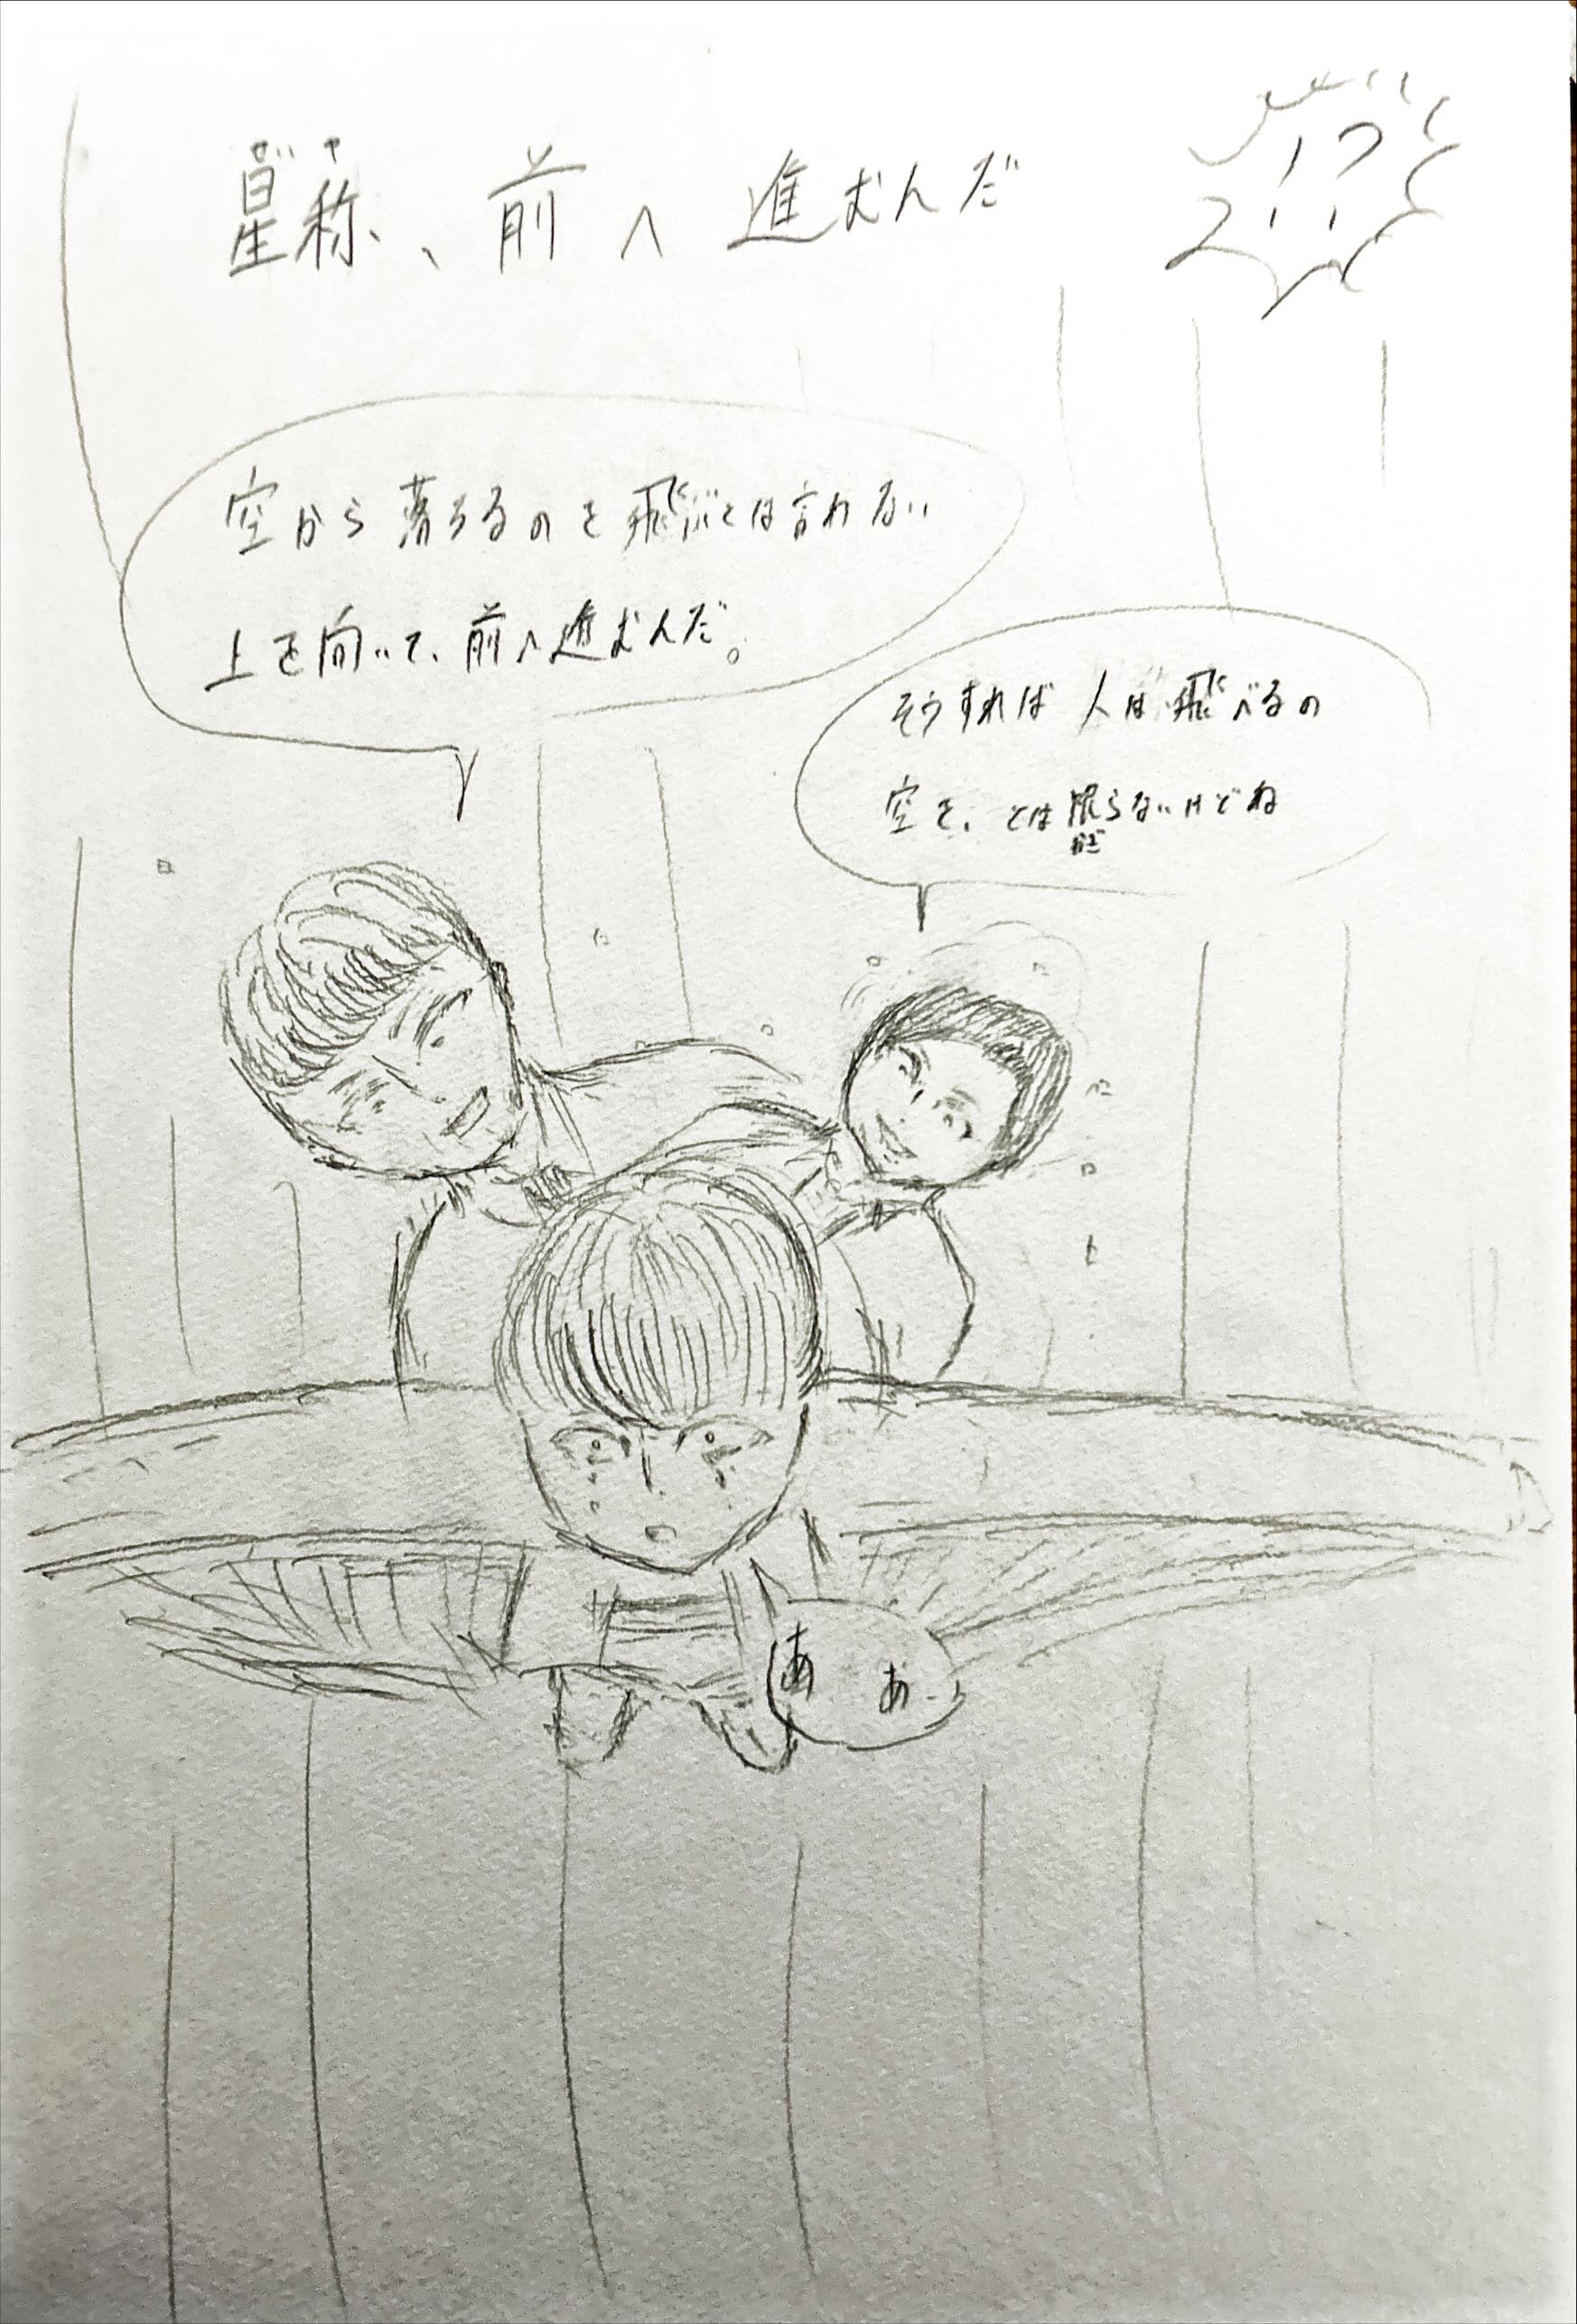 星称、前へ進むんだ
空から落ちるのを飛ぶとは言わない
上を向いて、前へ進むんだ。
そうすれば人は飛べるの
空を、とは限らないけどね
かぎ
ああ